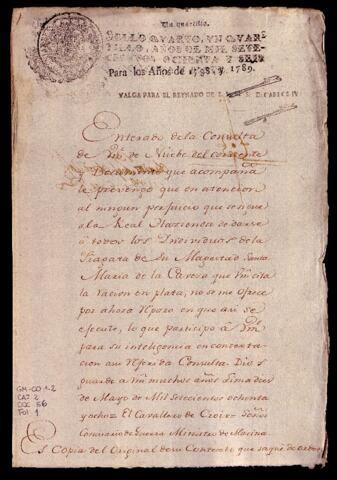 Un quartillo.
SELLO QVARTO, VN QVAR-
TILLO, AÑOS DE MIL SETE-
CIENTOS OCHENTA Y SEIS
Para los Años de 1788 y 1789.
VALGA PARA EL REYNADO DE S. M. EL S. D. CARLOS IV
Enterado de la Consulta
de Vm. de Nuebe del corriente
que acompaña
le prevengo que en atencion
al ningun perjuicio que se sigue
a la Real Hazienda de darse
à todos los Individuos de la
de Su Magestad Santa
Maria de la Caveza que Vm. cita
la racion en plata, no se me ofrece
por ahora reparo en que asi se
execute, lo que participo à Vm.
para su inteligencia en contexta-
cion a su referida Consulta. Dios
guarde a Vm. muchos años Lima dies
de Mayo de Mil Setecientos ochenta
y ocho = El Cavallero de Croix = Señor
Comisario de Guerra Ministro de Marina
Es Copia del Original de su Contexto que saqué de orden
GM-CO 1-2
CAJ. 2
DOC 56
Fol. 1